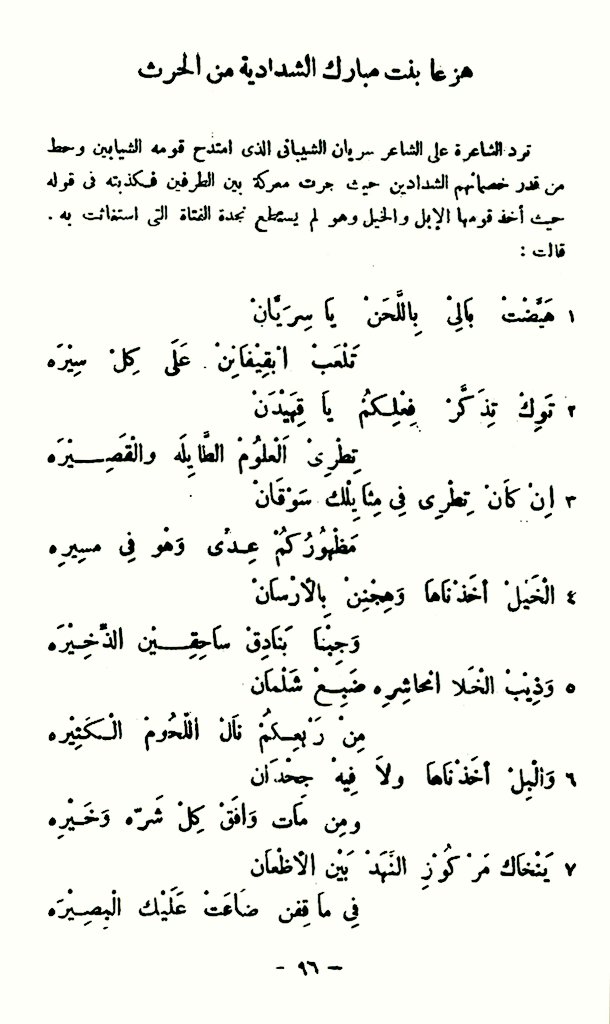 هزعا بنت مبارك الشدادية من الحرث
ترد الشاعرة على الشاعر سريان الشيبانى الذى امتدح قومه الشيابين وحط
من قدر خصمائهم الشدادين حيث جرت معركة بين الطرفين فكذبته فى قوله
حيث أخذ قومها الإبل والخيل وهو لم يستطع نجدة الفتاة التى استغاثت به .
قالت :
١ هَيَّضْتْ بَالِىْ بِاللَّحَنْ يَا سِرَيَّانْ
تَلْعَبْ ابْقِيْفَانِنْ عَلَى كِلْ سِيْرَه
٢ تَوِكْ تِذَكَّرْ فِعْلِكمُ يَا قِهَيْدَنْ
تِطْرِىْ اَلْعلُومْ الطَّايلَه والْقَصِــيْرَه
٣ اِنْ كَانْ تِطْرِى فِى مِثَايِلْك سَوْقَانْ
مَظْهُورُكمُ عِـدْى وَهْو فِى مسِيرِه
٤ الْخَيْل أخَذْنَاهَا وَهِجْنِنْ بِالأرْسانْ
وَجِبْنَا بَنَادِقْ ساحِقِــيْن الذْخِيْرَه
٥ وَذِيْبْ الْخَلا امْحاشِرِه ضَبِــعْ شَلْمان
مِنْ رَبْعِـكمُ نَالْ اللّحُومْ الْـكَثِيْره
٦ وَالْبِلْ أخَذْنَاهَا ولاَ فِيهْ جحْدَان
ومِن مَات وَافَقْ كِلْ شَرّه وَخَيْرِه
٧ يَنْخاك مَرْكُوْزِ النَّهَدْ بَيْن الأظْعَان
فِى ماقِفن ضَاعَتْ عَلَيْك الْبِصِيْرَه
– ٩٦ –